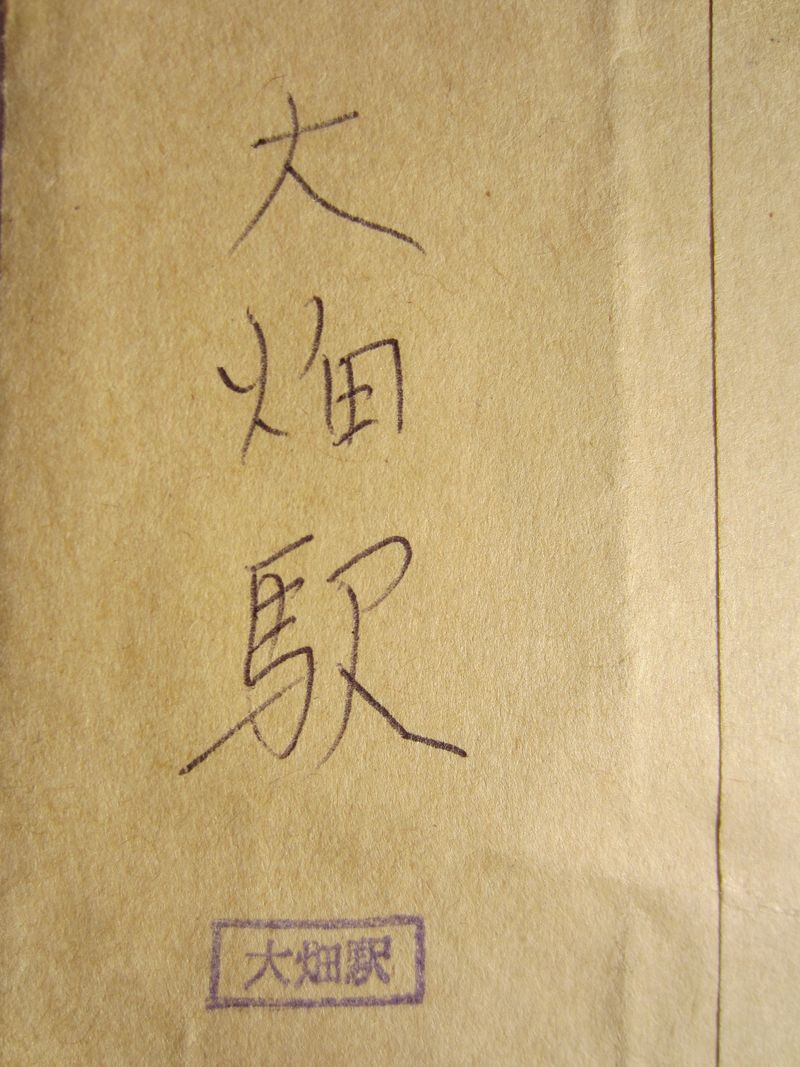 大畑駅
大畑駅